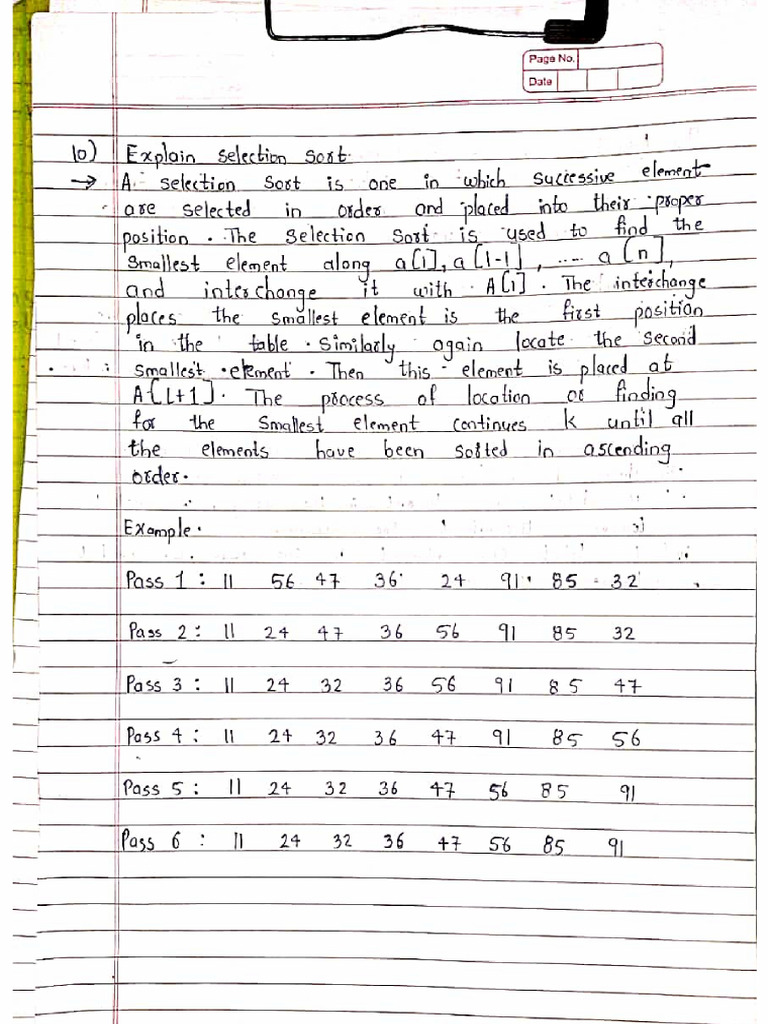 Page No.
Date
10) Explain selection sort.
→ A selection sort is one in which successive element
are selected in order and placed into their proper
position. The selection sort is used to find the
smallest element along a[1], a[1-1], .... a[n],
and interchange it with A[1]. The interchange
places the smallest element is the first position
in the table. Similarly again locate the second
smallest element. Then this element is placed at
A[1+1]. The process of location or finding
for the smallest element continues k until all
the elements have been sorted in ascending
order.
Example.
Pass 1 : 11 56 47 36 24 91 85 32
Pass 2 : 11 24 47 36 56 91 85 32
Pass 3 : 11 24 32 36 56 91 85 47
Pass 4 : 11 24 32 36 47 91 85 56
Pass 5 : 11 24 32 36 47 56 85 91
Pass 6 : 11 24 32 36 47 56 85 91